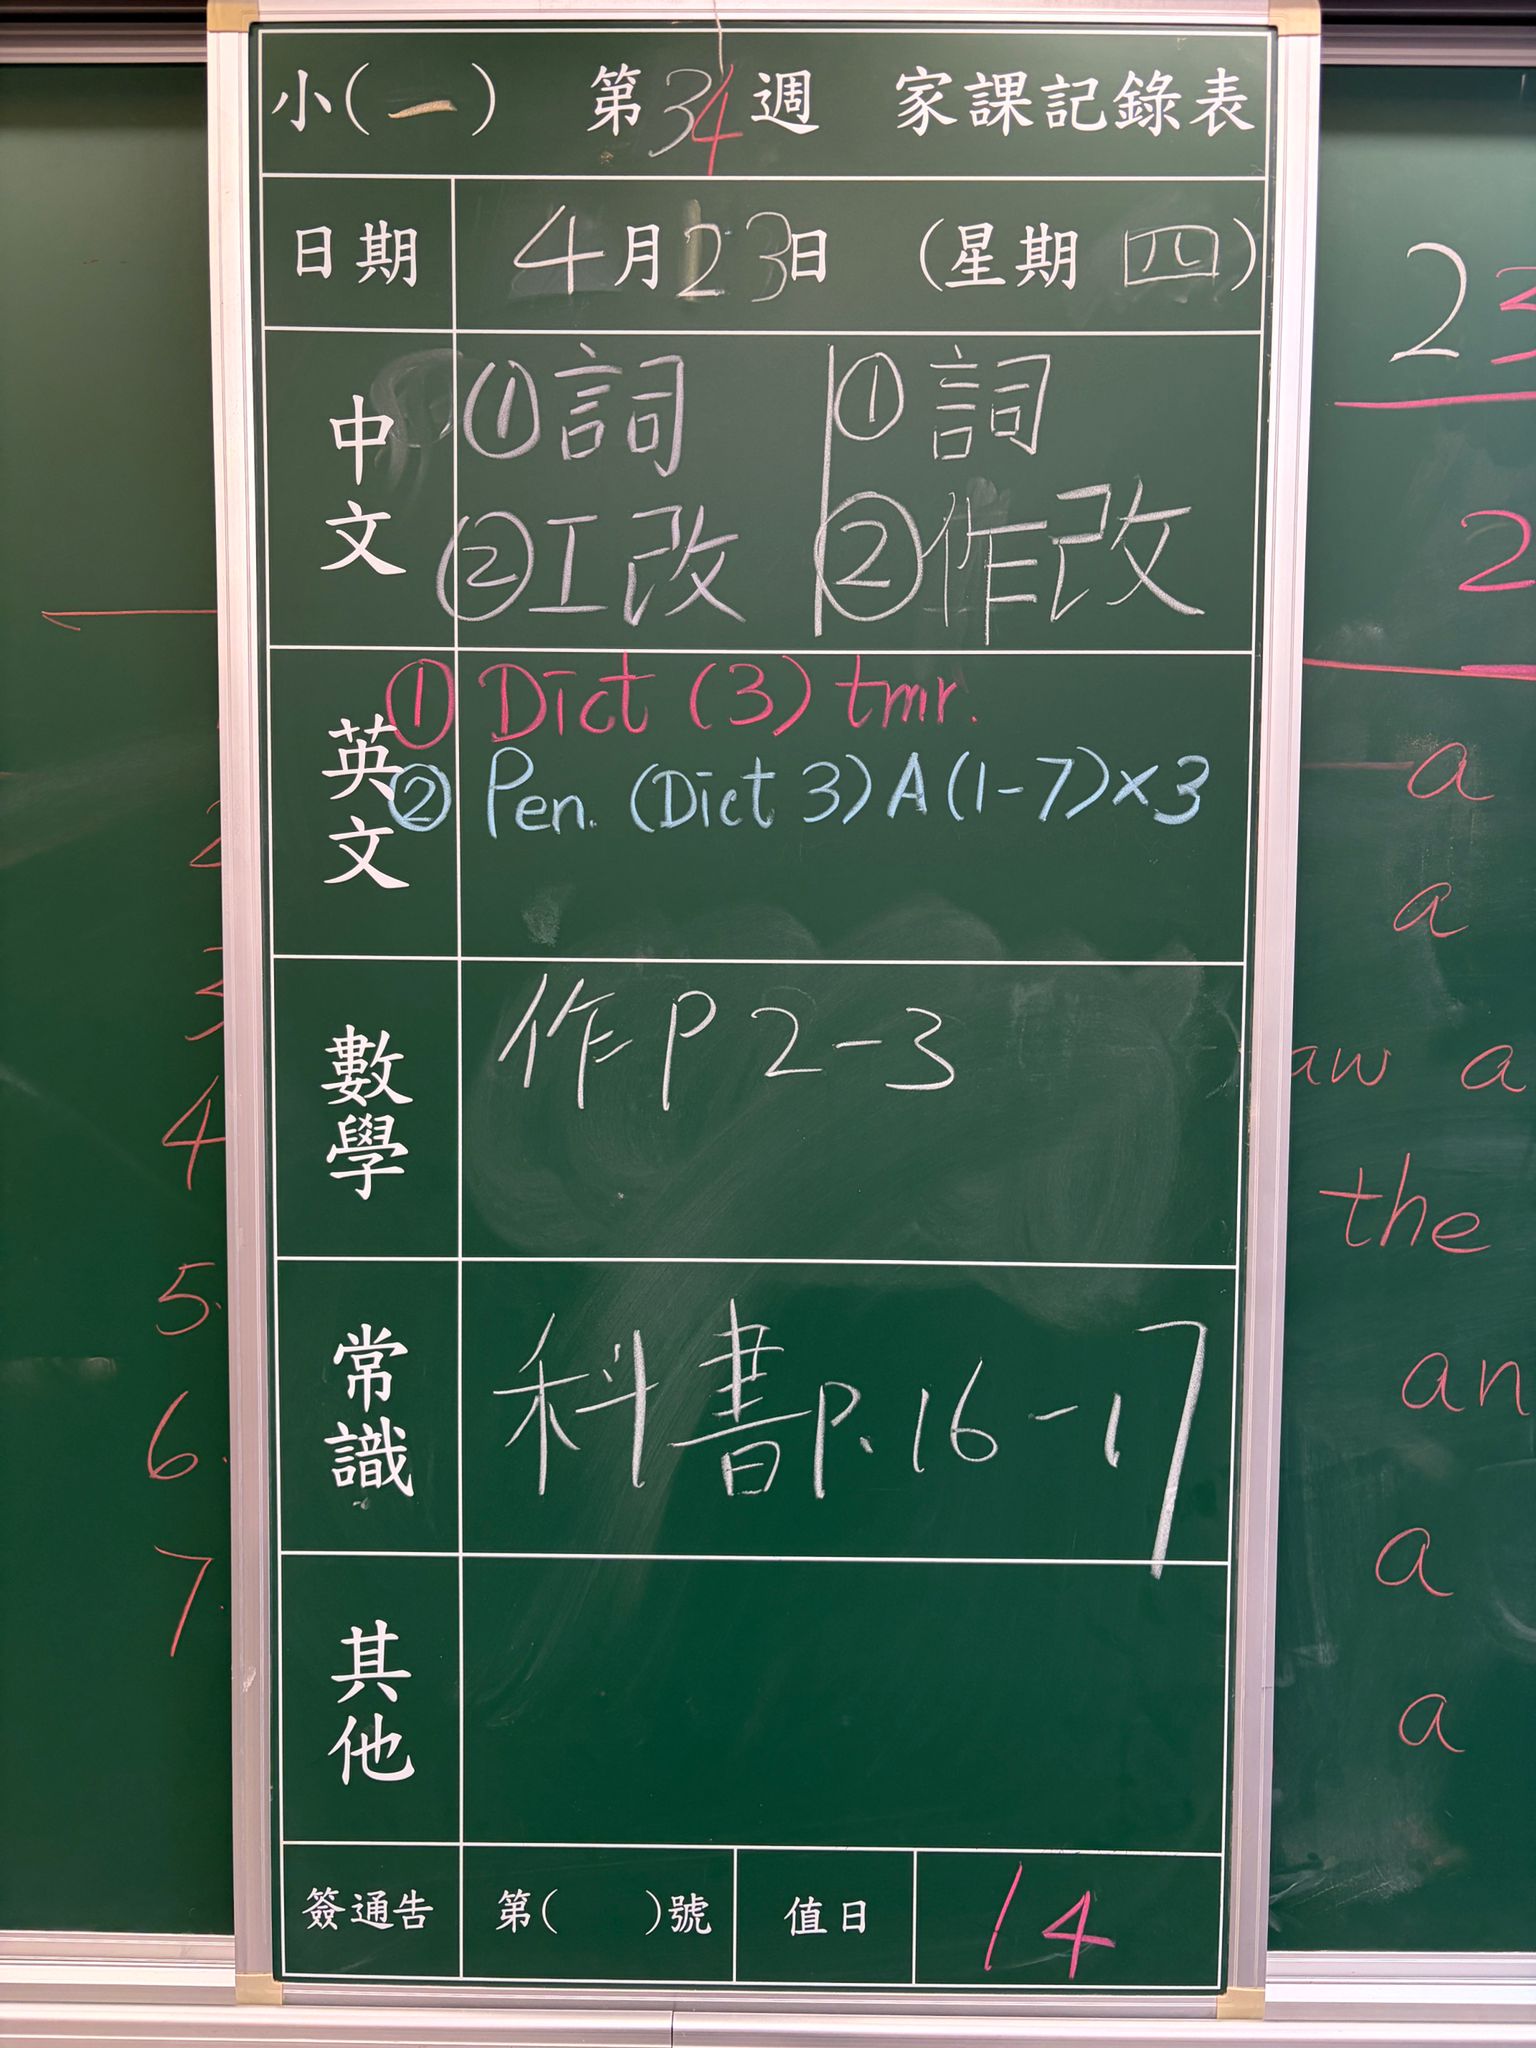 小(一) 第34週 家課記錄表
日期 4月23日 (星期四)
中文
①詞 ①詞
②工改 ②作改
英文
① Dict (3) tmr.
② Pen. (Dict 3) A(1-7)×3
數學
作P 2-3
常識
科書P.16-17
其他
簽通告 第( )號 值日 14
3
4
5.
6.
7.
23
2
a
a
aw a
the
an
a
a